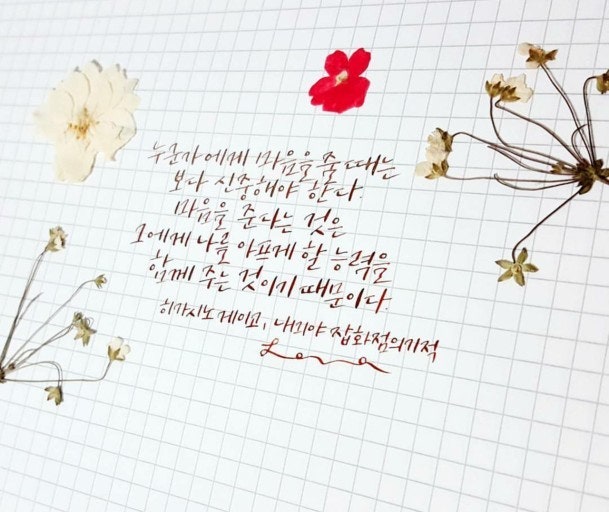 누군가에게 마음을 줄 때는
보다 신중해야 한다.
마음을 준다는 것은
그에게 나를 아프게 할 능력을
함께 주는 것이기 때문이다.
히가시노 게이고, 나미야 잡화점의기적
Lona